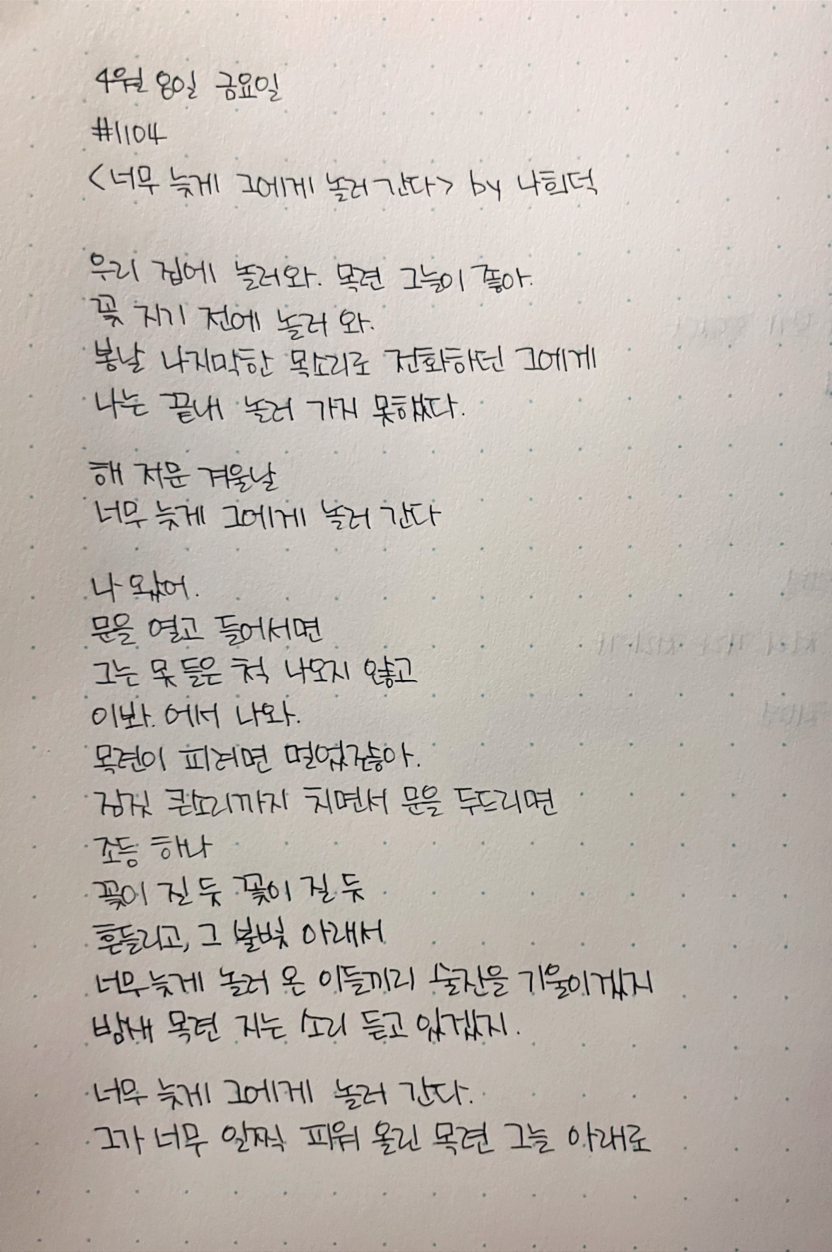 4월 8일 금요일
#1104
<너무 늦게 그에게 놀러 간다> by 나희덕
우리 집에 놀러와. 목련 그늘이 좋아.
꽃 지기 전에 놀러 와.
봄날 나지막한 목소리로 전화하던 그에게
나는 끝내 놀러 가지 못했다.
해 저문 겨울날
너무 늦게 그에게 놀러 간다
나 왔어.
문을 열고 들어서면
그는 못 들은 척 나오지 않고
이봐. 어서 나와.
목련이 피려면 멀었잖아.
짐짓 큰소리까지 치면서 문을 두드리면
조등 하나
꽃이 질 듯 꽃이 질 듯
흔들리고, 그 불빛 아래서
너무 늦게 놀러 온 이들끼리 술잔을 기울이겠지
밤새 목련 지는 소리 듣고 있겠지.
너무 늦게 그에게 놀러 간다.
그가 너무 일찍 피워 올린 목련 그늘 아래로